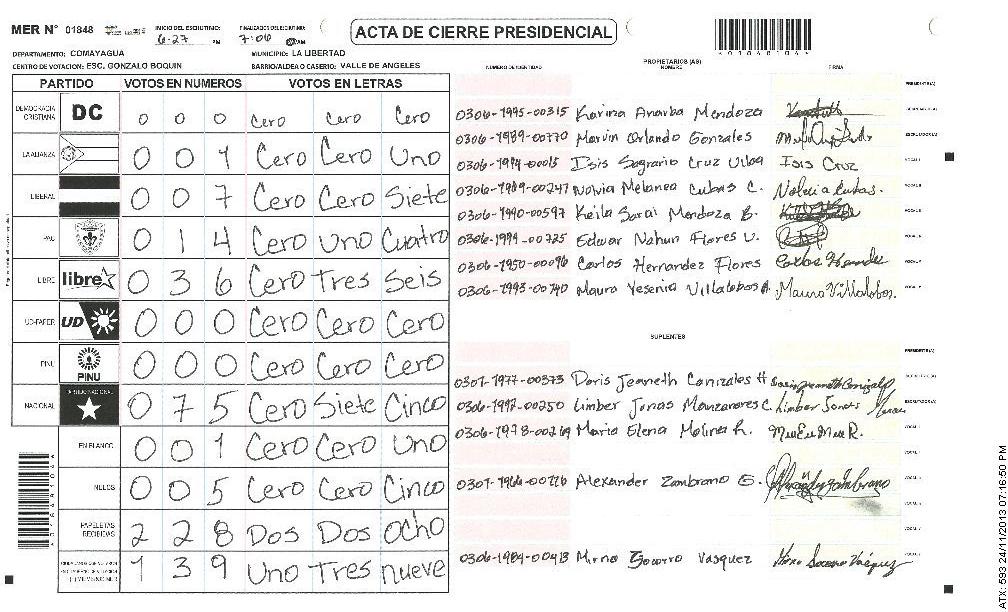 MER N° 01848
INICIO DEL ESCRUTINIO: 6-27 PM
FINALIZADO ESCRUTINIO: 7:06 AM
ACTA DE CIERRE PRESIDENCIAL
*01848104*
DEPARTAMENTO: COMAYAGUA
MUNICIPIO: LA LIBERTAD
CENTRO DE VOTACION: ESC. GONZALO BOQUIN
BARRIO/ALDEA O CASERIO: VALLE DE ANGELES
PARTIDO VOTOS EN NUMEROS VOTOS EN LETRAS
DEMOCRACIA CRISTIANA DC 0 0 0 Cero Cero Cero
LA ALIANZA 0 0 1 Cero Cero Uno
LIBERAL 0 0 7 Cero Cero Siete
PAC 0 1 4 Cero Uno Cuatro
LIBRE libre 0 3 6 Cero Tres Seis
UD-FAPER UD 0 0 0 Cero Cero Cero
PINU PINU 0 0 0 Cero Cero Cero
NACIONAL PARTIDO NACIONAL 0 7 5 Cero Siete Cinco
EN BLANCO 0 0 1 Cero Cero Uno
NULOS 0 0 5 Cero Cero Cinco
PAPELETAS RECIBIDAS 2 2 8 Dos Dos Ocho
1 3 9 Uno Tres nueve
PROPIETARIOS (AS)
NUMERO DE IDENTIDAD NOMBRE FIRMA
PRESIDENTE(A)
0306-1995-00315 Karina Anarba Mendoza
0306-1989-00770 Marvin Orlando Gonzales ESCRUTADOR(A)
0306-1994-00015 Isis Sagrario Cruz Ulloa Isis Cruz VOCAL I
0306-1989-00247 Nolvia Melanea Cubas C. Nolvia Cubas. VOCAL II
0306-1990-00597 Keila Sarai Mendoza B.
0306-1994-00725 Edwar Nahun Flores U.
0306-1950-00096 Carlos Hernandez Flores
0306-1993-00740 Maura Yesenia Villalobos A. Maura Villalobos.
SUPLENTES
PRESIDENTE(A)
0301-1977-00373 Doris Jeaneth Canizales H
0306-1997-00250 Limber Jonas Manzanares C. Limber Jonas ESCRUTADOR(A)
0306-1978-00269 Maria Elena Molina R.
0301-1966-00276 Alexander Zambrano G.
0306-1984-00413 Mirna Socorro Vasquez
*01848104*
ATX: 593 24/11/2013 07:16:50 PM